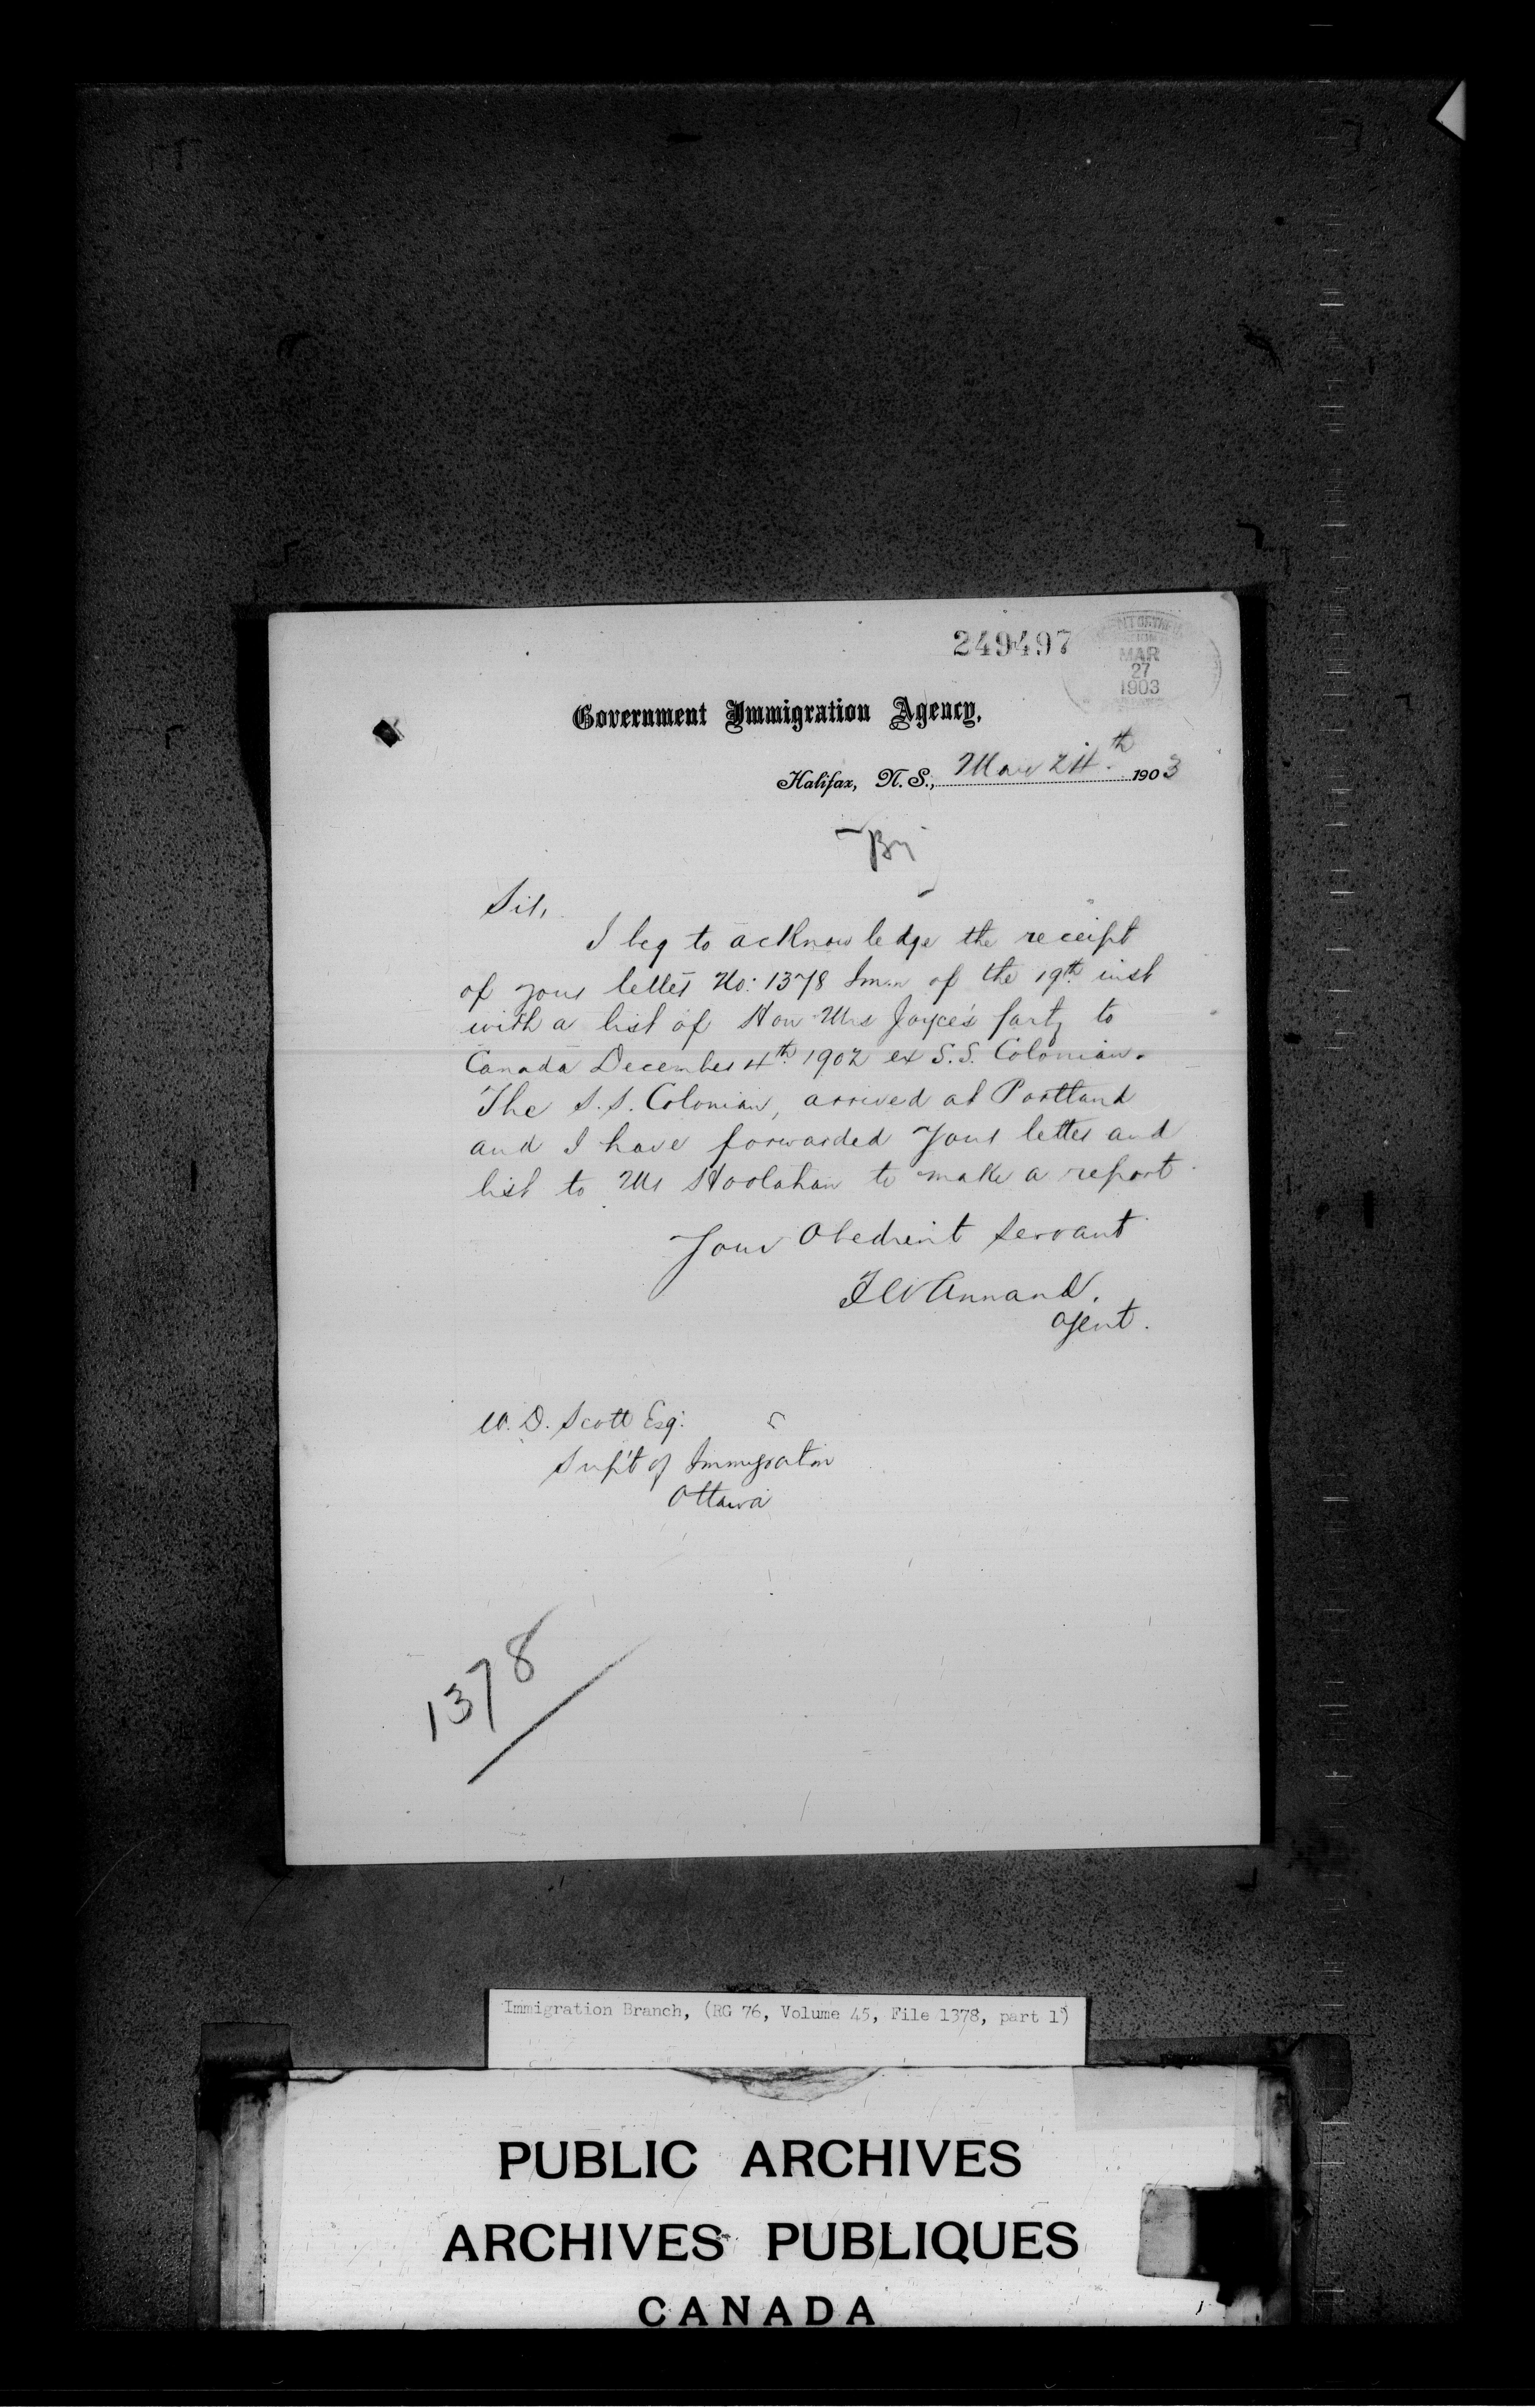 249497
MAR
27
1903
Government Immigration Agency,
Halifax, N. S., Mar 24th 1903
Sir,
I beg to acknowledge the receipt
of your letter No: 1378 Imm of the 19th inst
with a list of Hon Mrs Joyce's party to
Canada December 4th 1902 ex S.S. Colonian.
The S.S. Colonian, arrived at Portland
and I have forwarded your letter and
list to Mr Hoolahan to make a report.
Your Obedient Servant
F W Annand.
Agent.
W. D. Scott Esq:
Sup't of Immigration
Ottawa
1378
Immigration Branch, (RG 76, Volume 45, File 1378, part 1)
PUBLIC ARCHIVES
ARCHIVES PUBLIQUES
CANADA